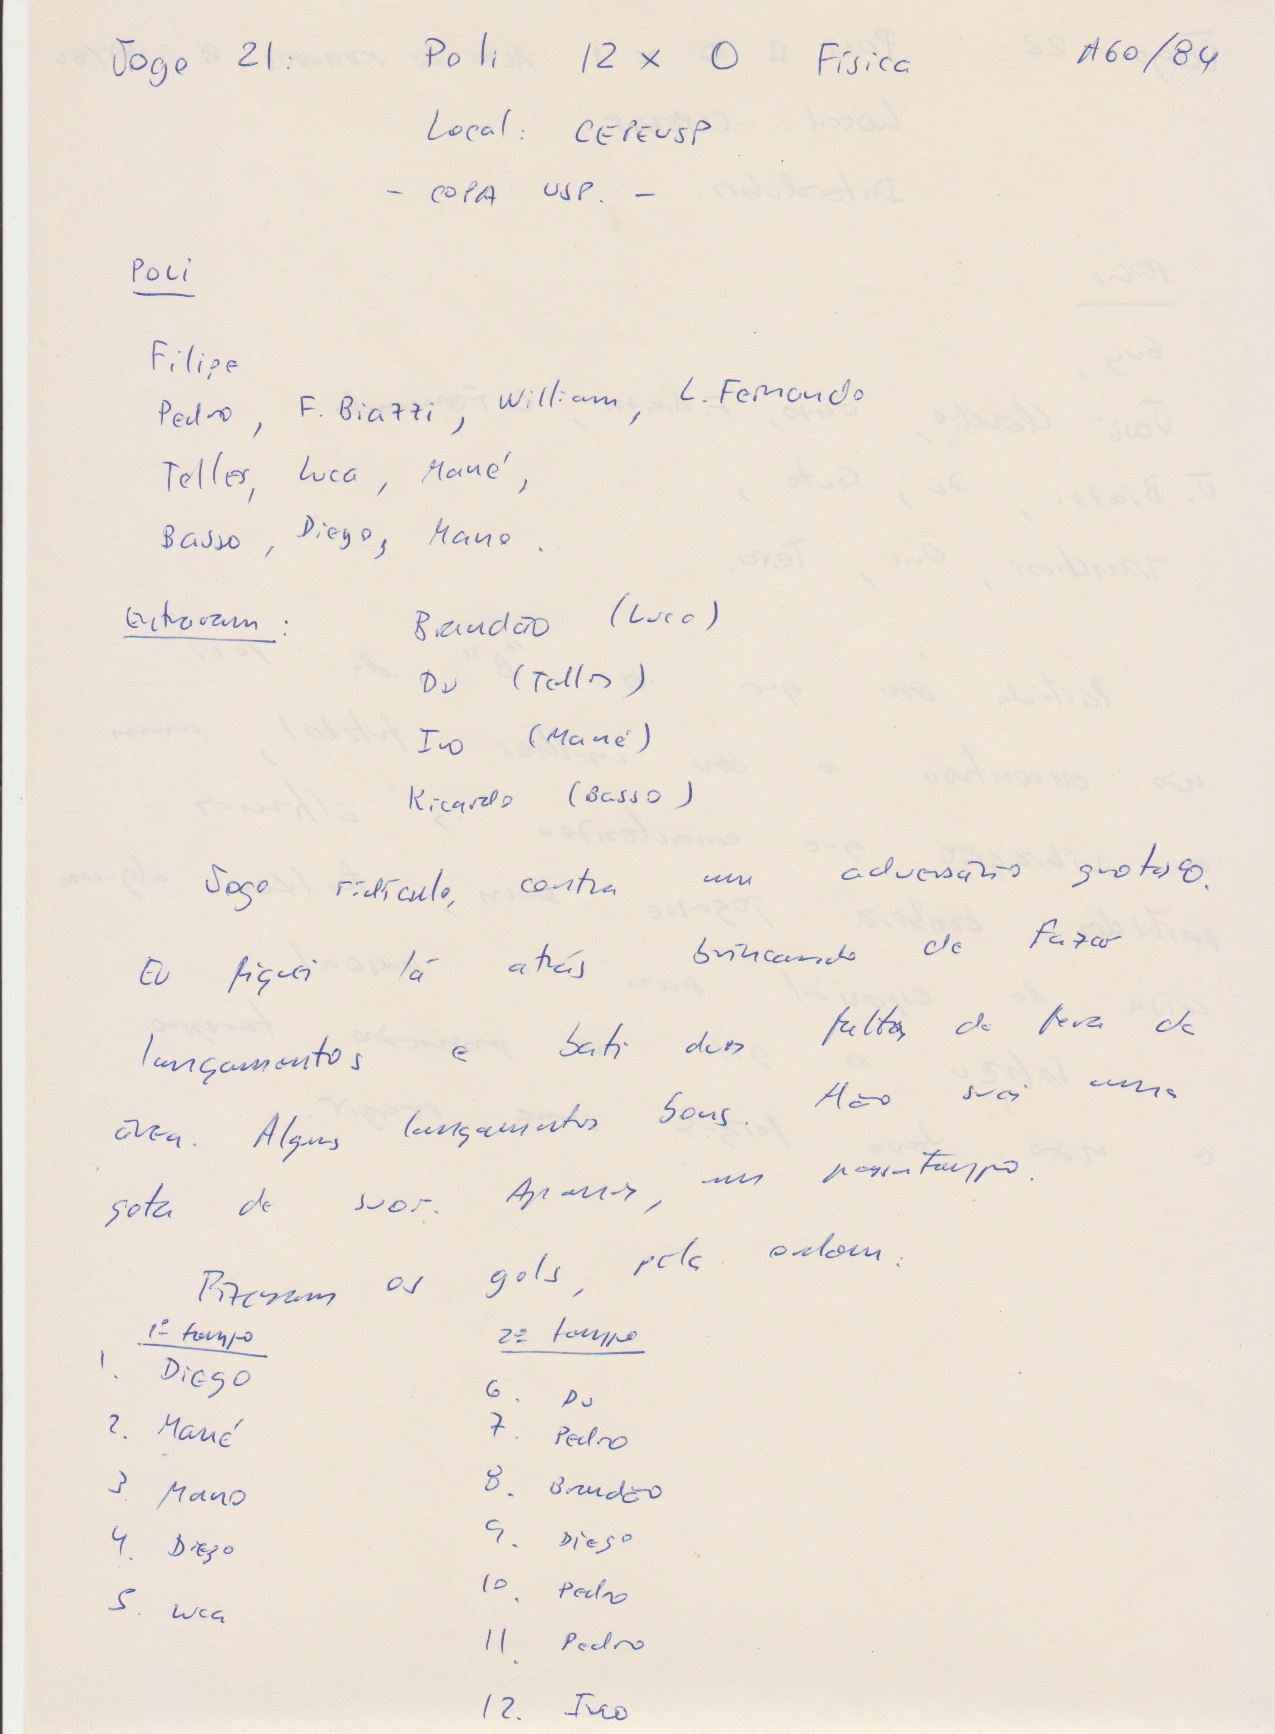 Jogo 21: Poli 12 x 0 Física AGO/84
Local: CEPEUSP
- COPA USP. -
POLI
Filipe
Pedro, F. Biazzi, William, L. Fernando
Telles, Luca, Mané,
Basso, Diego, Mano.
Entraram: Brandão (Luca)
Du (Telles)
Ivo (Mané)
Ricardo (Basso)
Jogo ridículo, contra um adversário grotesco.
Eu fiquei lá atrás brincando de fazer
lançamentos e bati duas faltas de fora da
área. Alguns lançamentos bons. Não suei uma
gota de suor. Apenas, um passatempo.
Fizeram os gols, pela ordem:
1º tempo 2º tempo
1. Diego
2. Mané
3. Mano
4. Diego
5. Luca
6. Du
7. Pedro
8. Brandão
9. Diego
10. Pedro
11. Pedro
12. Ivo